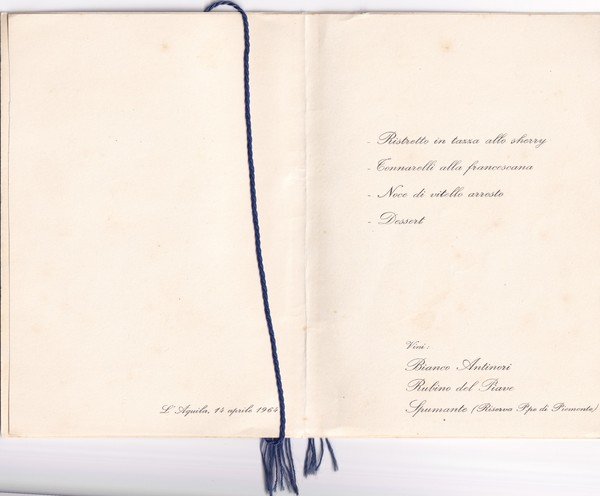 - Ristretto in tazza allo sherry
- Tonnarelli alla francescana
- Noce di vitello arrosto
- Dessert
Vini:
Bianco Antinori
Rubino del Piave
Spumante (Riserva Pipe di Piemonte)
L'Aquila, 14 aprile 1964